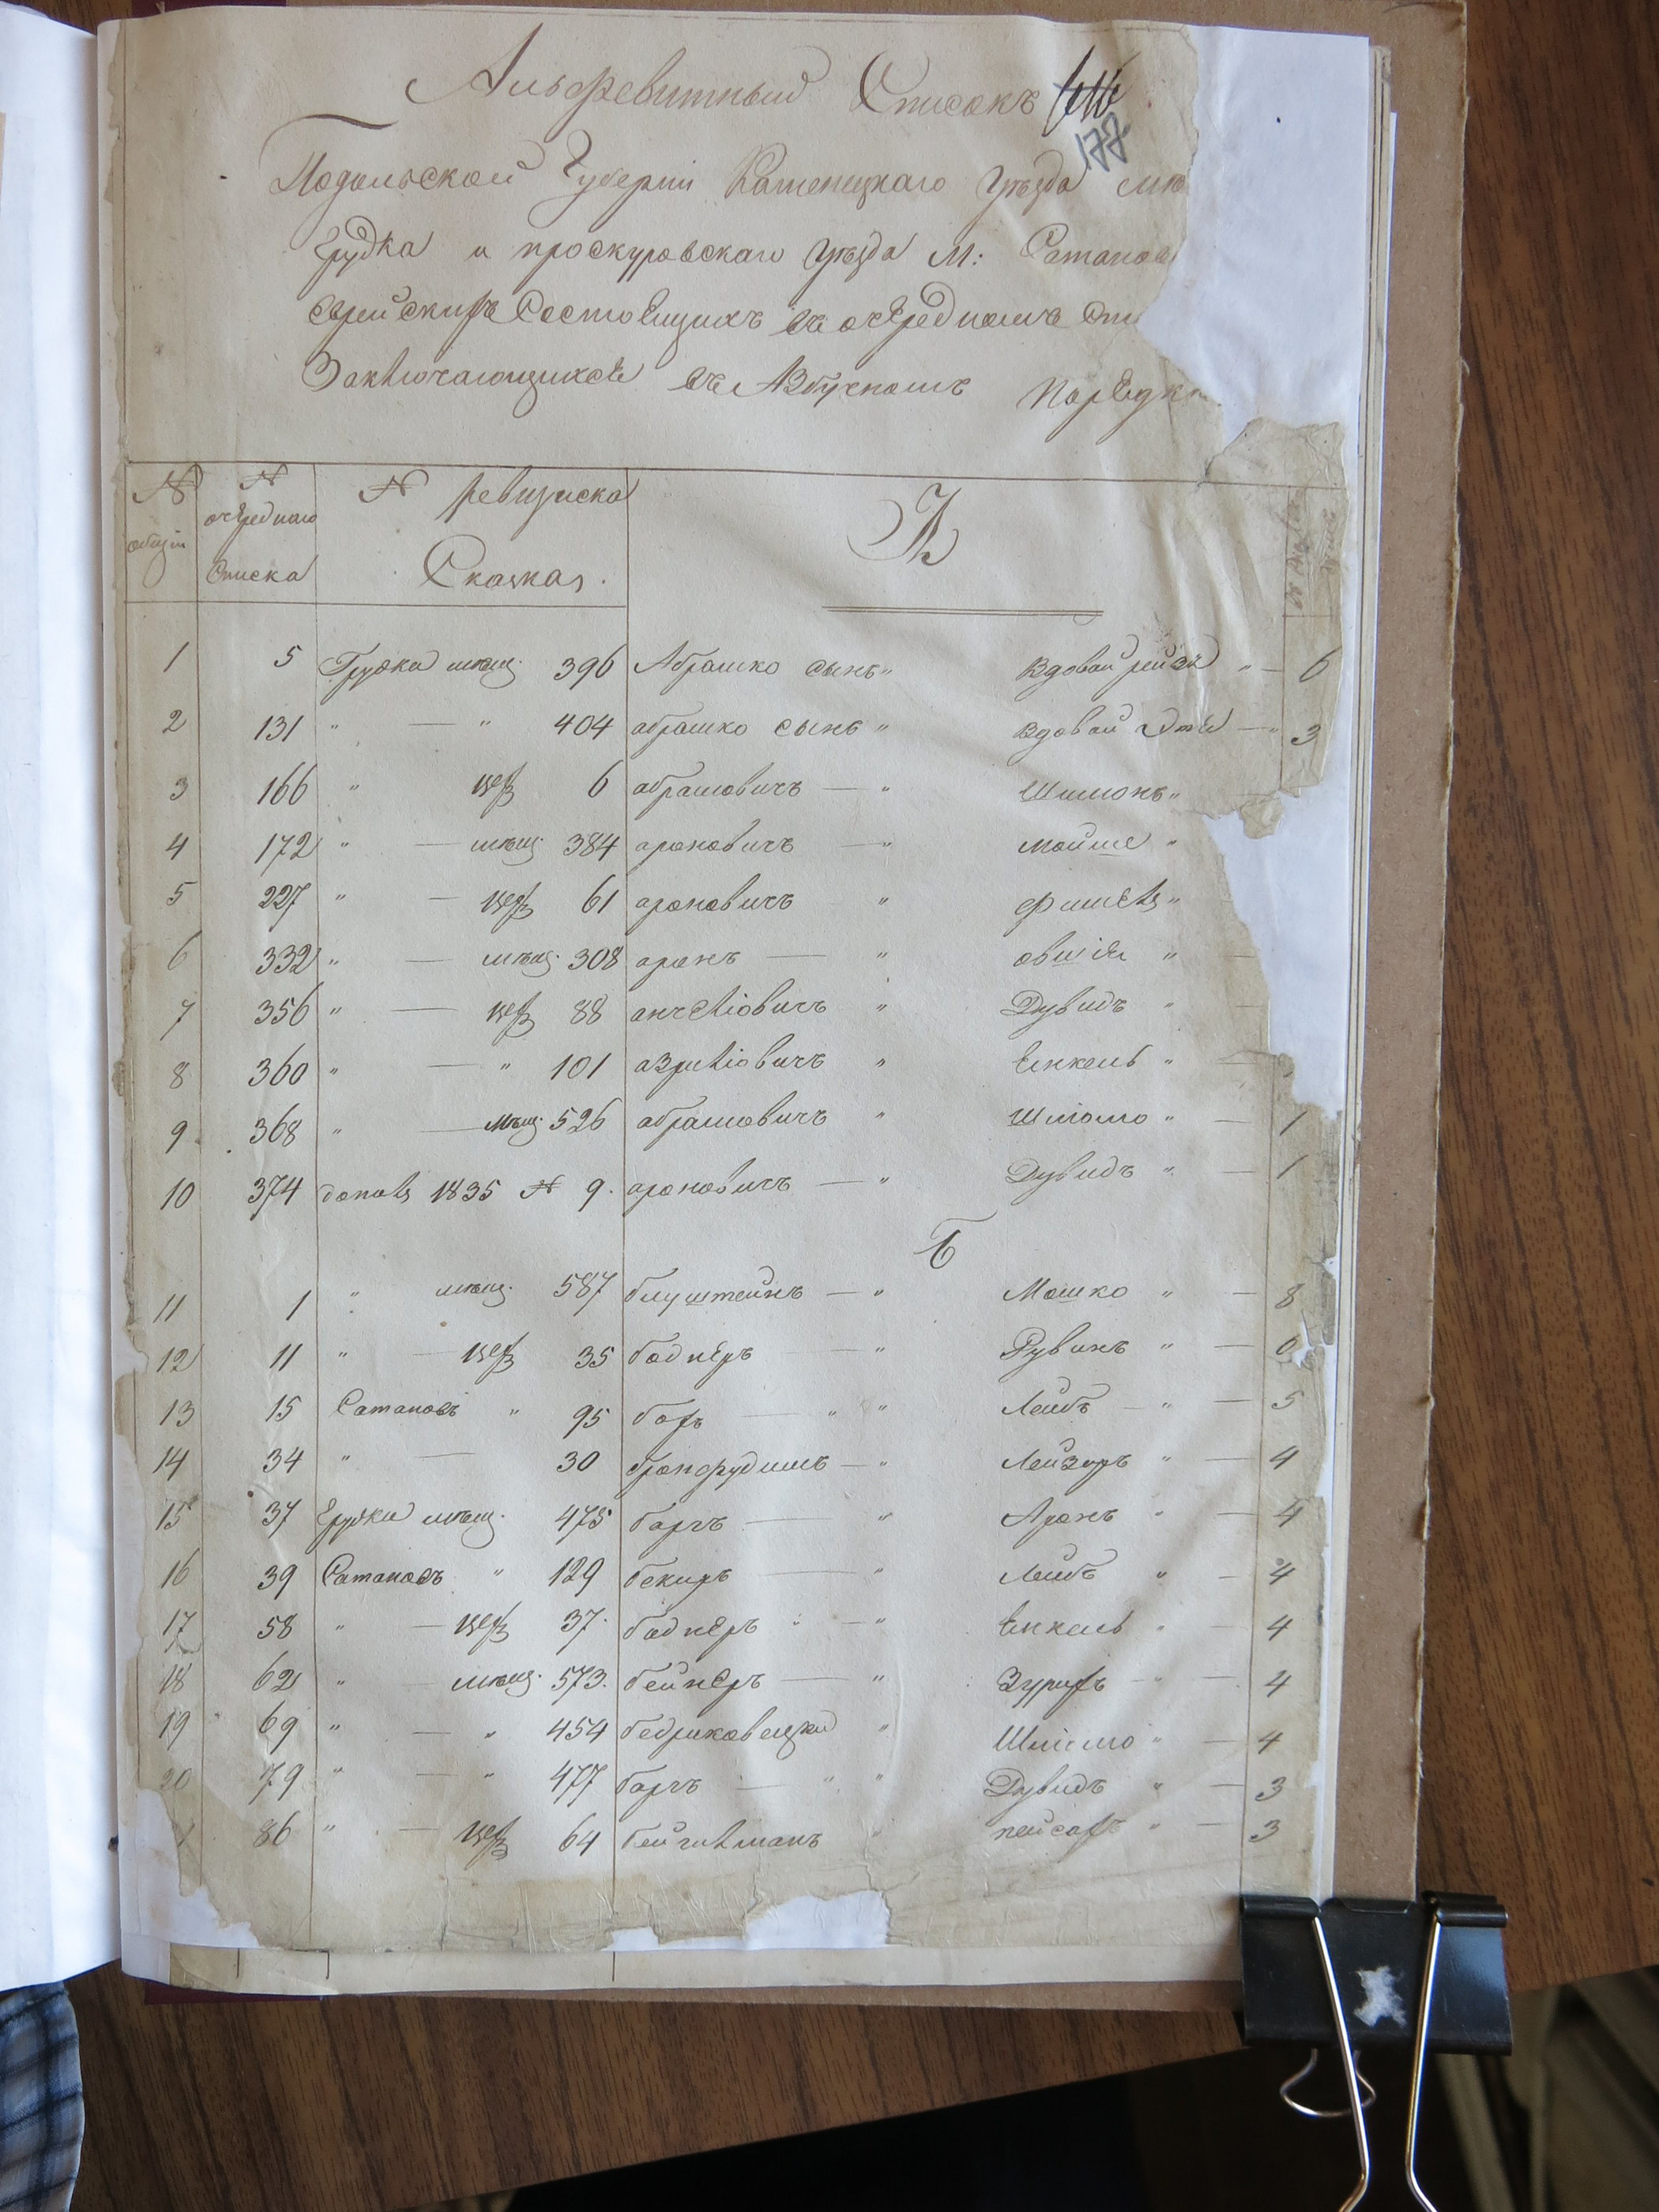 Альфевитный Списокъ
177
Подольской Губерніи Каменецкаго Уѣзда мѣ
Грудка и проскуровскаго Уѣзда М: Сатанов
Еврейскихъ Состоещихъ въ очередномъ Спи
Заключающихсе въ Азбучномъ Поредк
№ общій
№ очереднаго Списка
№ ревизска Сказкаҙ.
А
1 5 Грудка мѣщ. 396 Абрашко сынъ " вдовай рейзи " — 6
2 131 " — " 404 абрашко сынъ " вдовай Эти — " 3
3 166 " цех 6 абрамовичъ — " Шимонъ "
4 172 " — мѣщ. 384 ароновичъ — " мойше "
5 227 " — цех 61 ароновичъ " фишель "
6 332 " — мѣщ. 308 аронъ — " овшія " —
7 356 " — цех 88 анчеліовичъ " Дувидъ " —
8 360 " — " 101 азриліовичъ " Енкель " —
9 368 " — мѣщ. 526 абрамовичъ " Шліомо " — 1
10 374 допол 1835 № 9. ароновичъ — " Дувидъ " — 1
Б
11 1 " мѣщ. 587 блуштейнъ — " Мошко " — 8
12 11 " — цех 35 боднеръ — " Рувинъ " —
13 15 Сатановъ " 95 бахъ — " " Лейбъ — " — 5
14 34 " — 30 бронфудимъ — " Лейзоръ " — 4
15 37 Грудка мѣщ. 475 барчъ — " Аронъ " — 4
16 39 Сатановъ " 129 бекиръ — " Лейбъ " — 4
17 58 " — цех 37. боднеръ " — " Енкель " — 4
18 62 " — мѣщ. 573. бейнеръ — " Зурихъ — " — 4
19 69 " — " 454 бедриковецкий " Шліомо " — 4
20 79 " — " 477 барчъ — " " Дувидъ " — 3
86 " — цех 64 бейгилманъ " пейсахъ " — 3